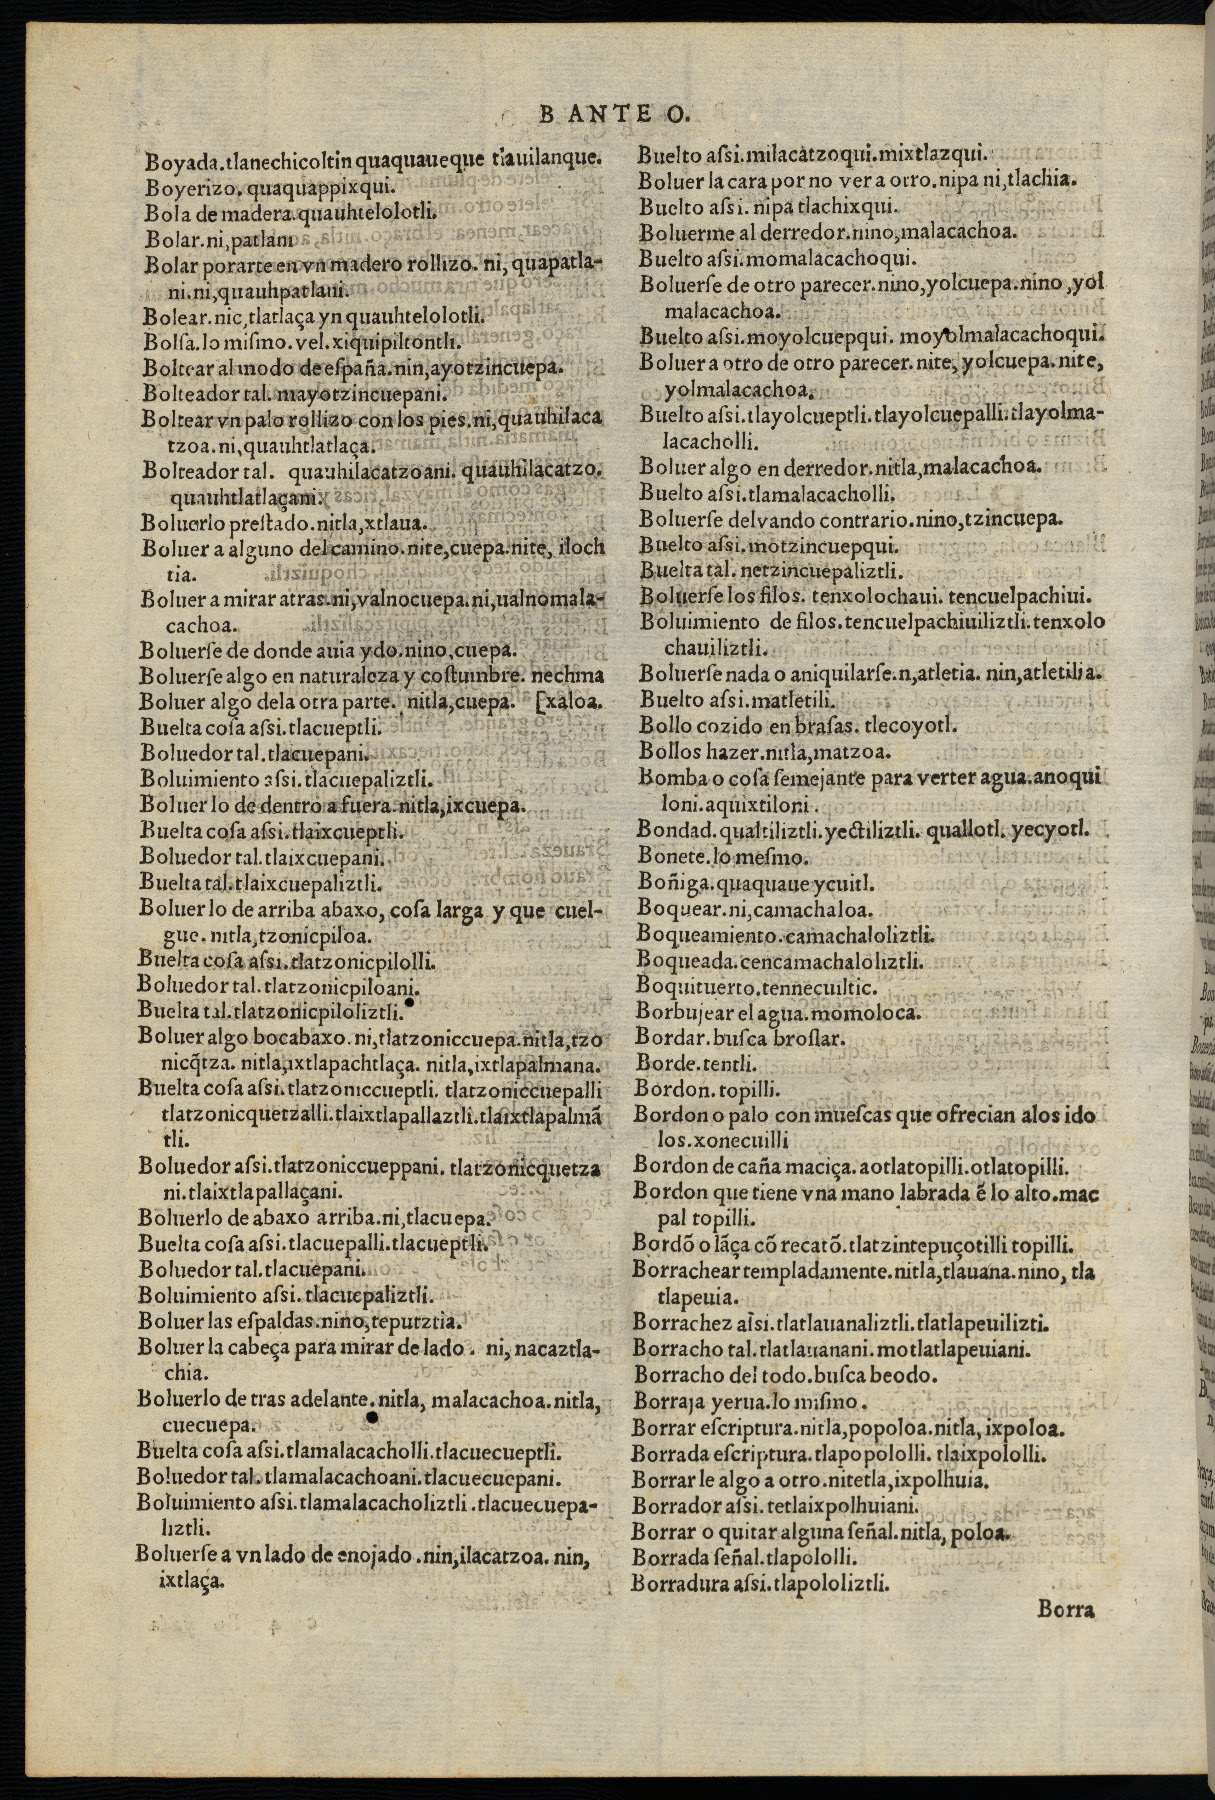 B ANTE O.
Boyada.tlanechicoltin quaquaueque tlauilanque.
Boyerizo. quaquappixqui.
Bola de madera.quauhtelolotli.
Bolar.ni,patlani
Bolar porarte en vn madero rollizo. ni, quapatla-
ni.ni,quauhpatlani.
Bolear.nic,tlatlaça yn quauhtelolotli.
Bolſa.lo miſmo.vel.xiquipiltontli.
Boltear al modo de eſpaña.nin,ayotzincuepa.
Bolteador tal. mayotzincuepani.
Boltear vn palo rollizo con los pies.ni,quauhilaca
tzoa.ni,quauhtlatlaça.
Bolteador tal. quauhilacatzoani. quauhilacatzo.
quauhtlatlaçani.
Boluerlo preſtado.nitla,xtlaua.
Boluer a alguno del camino.nite,cuepa.nite, iloch
tia.
Boluer a mirar atras.ni,valnocuepa.ni,ualnomala-
cachoa.
Boluerſe de donde auia ydo.nino,cuepa.
Boluerſe algo en naturaleza y coſtumbre. nechma
Boluer algo dela otra parte. nitla,cuepa. [xaloa.
Buelta coſa aſsi.tlacueptli.
Boluedor tal.tlacuepani.
Boluimiento aſsi.tlacuepaliztli.
Boluer lo de dentro a fuera.nitla,ixcuepa.
Buelta coſa aſsi.tlaixcueptli.
Boluedor tal.tlaixcuepani.
Buelta tal.tlaixcuepaliztli.
Boluer lo de arriba abaxo, coſa larga y que cuel-
gue. nitla,tzonicpiloa.
Buelta coſa aſsi.tlatzonicpilolli.
Boluedor tal.tlatzonicpiloani.
Buelta tal.tlatzonicpiloliztli.
Boluer algo bocabaxo.ni,tlatzoniccuepa.nitla,tzo
nicq̃tza. nitla,ixtlapachtlaça. nitla,ixtlapalmana.
Buelta coſa aſsi.tlatzoniccueptli. tlatzoniccuepalli
tlatzonicquetzalli.tlaixtlapallaztli.tlaixtlapalmã
tli.
Boluedor aſsi.tlatzoniccueppani. tlatzonicquetza
ni.tlaixtlapallaçani.
Boluerlo de abaxo arriba.ni,tlacuepa.
Buelta coſa aſsi.tlacuepalli.tlacueptli.
Boluedor tal.tlacuepani.
Boluimiento aſsi.tlacuepaliztli.
Boluer las eſpaldas.nino,teputztia.
Boluer la cabeça para mirar de lado. ni, nacaztla-
chia.
Boluerlo de tras adelante.nitla, malacachoa.nitla,
cuecuepa.
Buelta coſa aſsi.tlamalacacholli.tlacuecueptli.
Boluedor tal.tlamalacachoani.tlacuecuepani.
Boluimiento aſsi.tlamalacacholiztli.tlacuecuepa-
liztli.
Boluerſe a vn lado de enojado.nin,ilacatzoa. nin,
ixtlaça.
Buelto aſsi.milacatzoqui.mixtlazqui.
Boluer la cara por no ver a otro.nipa ni,tlachia.
Buelto aſsi. nipa tlachixqui.
Boluerme al derredor.nino,malacachoa.
Buelto aſsi.momalacachoqui.
Boluerſe de otro parecer.nino,yolcuepa.nino,yol
malacachoa.
Buelto aſsi.moyolcuepqui. moyolmalacachoqui.
Boluer a otro de otro parecer.nite, yolcuepa.nite,
yolmalacachoa.
Buelto aſsi.tlayolcueptli.tlayolcuepalli.tlayolma-
lacacholli.
Boluer algo en derredor.nitla,malacachoa.
Buelto aſsi.tlamalacacholli.
Boluerſe delvando contrario.nino,tzincuepa.
Buelto aſsi.motzincuepqui.
Buelta tal. netzincuepaliztli.
Boluerſe los filos. tenxolochaui. tencuelpachiui.
Boluimiento de filos.tencuelpachiuiliztli.tenxolo
chauiliztli.
Boluerſe nada o aniquilarſe.n,atletia. nin,atletilia.
Buelto aſsi.matletili.
Bollo cozido en braſas. tlecoyotl.
Bollos hazer.nitla,matzoa.
Bomba o coſa ſemejante para verter agua.anoqui
loni.aquixtiloni.
Bondad.qualtiliztli.yectiliztli. quallotl. yecyotl.
Bonete.lo meſmo.
Boñiga.quaquaue ycuitl.
Boquear.ni,camachaloa.
Boqueamiento.camachaloliztli.
Boqueada.cencamachaloliztli.
Boquituerto.tennecuiltic.
Borbujear el agua.momoloca.
Bordar.buſca broſlar.
Borde.tentli.
Bordon.topilli.
Bordon o palo con mueſcas que ofrecian alos ido
los.xonecuilli
Bordon de caña maciça.aotlatopilli.otlatopilli.
Bordon que tiene vna mano labrada ẽ lo alto.mac
pal topilli.
Bordõ o lãça cõ recatõ.tlatzintepuçotilli topilli.
Borrachear templadamente.nitla,tlauana.nino, tla
tlapeuia.
Borrachez aſsi.tlatlauanaliztli.tlatlapeuilizti.
Borracho tal.tlatlauanani.motlatlapeuiani.
Borracho del todo.buſca beodo.
Borraja yerua.lo miſmo.
Borrar eſcriptura.nitla,popoloa.nitla, ixpoloa.
Borrada eſcriptura.tlapopololli. tlaixpololli.
Borrar le algo a otro.nitetla,ixpolhuia.
Borrador aſsi.tetlaixpolhuiani.
Borrar o quitar alguna ſeñal.nitla, poloa.
Borrada ſeñal.tlapololli.
Borradura aſsi.tlapololiztli.
Borra